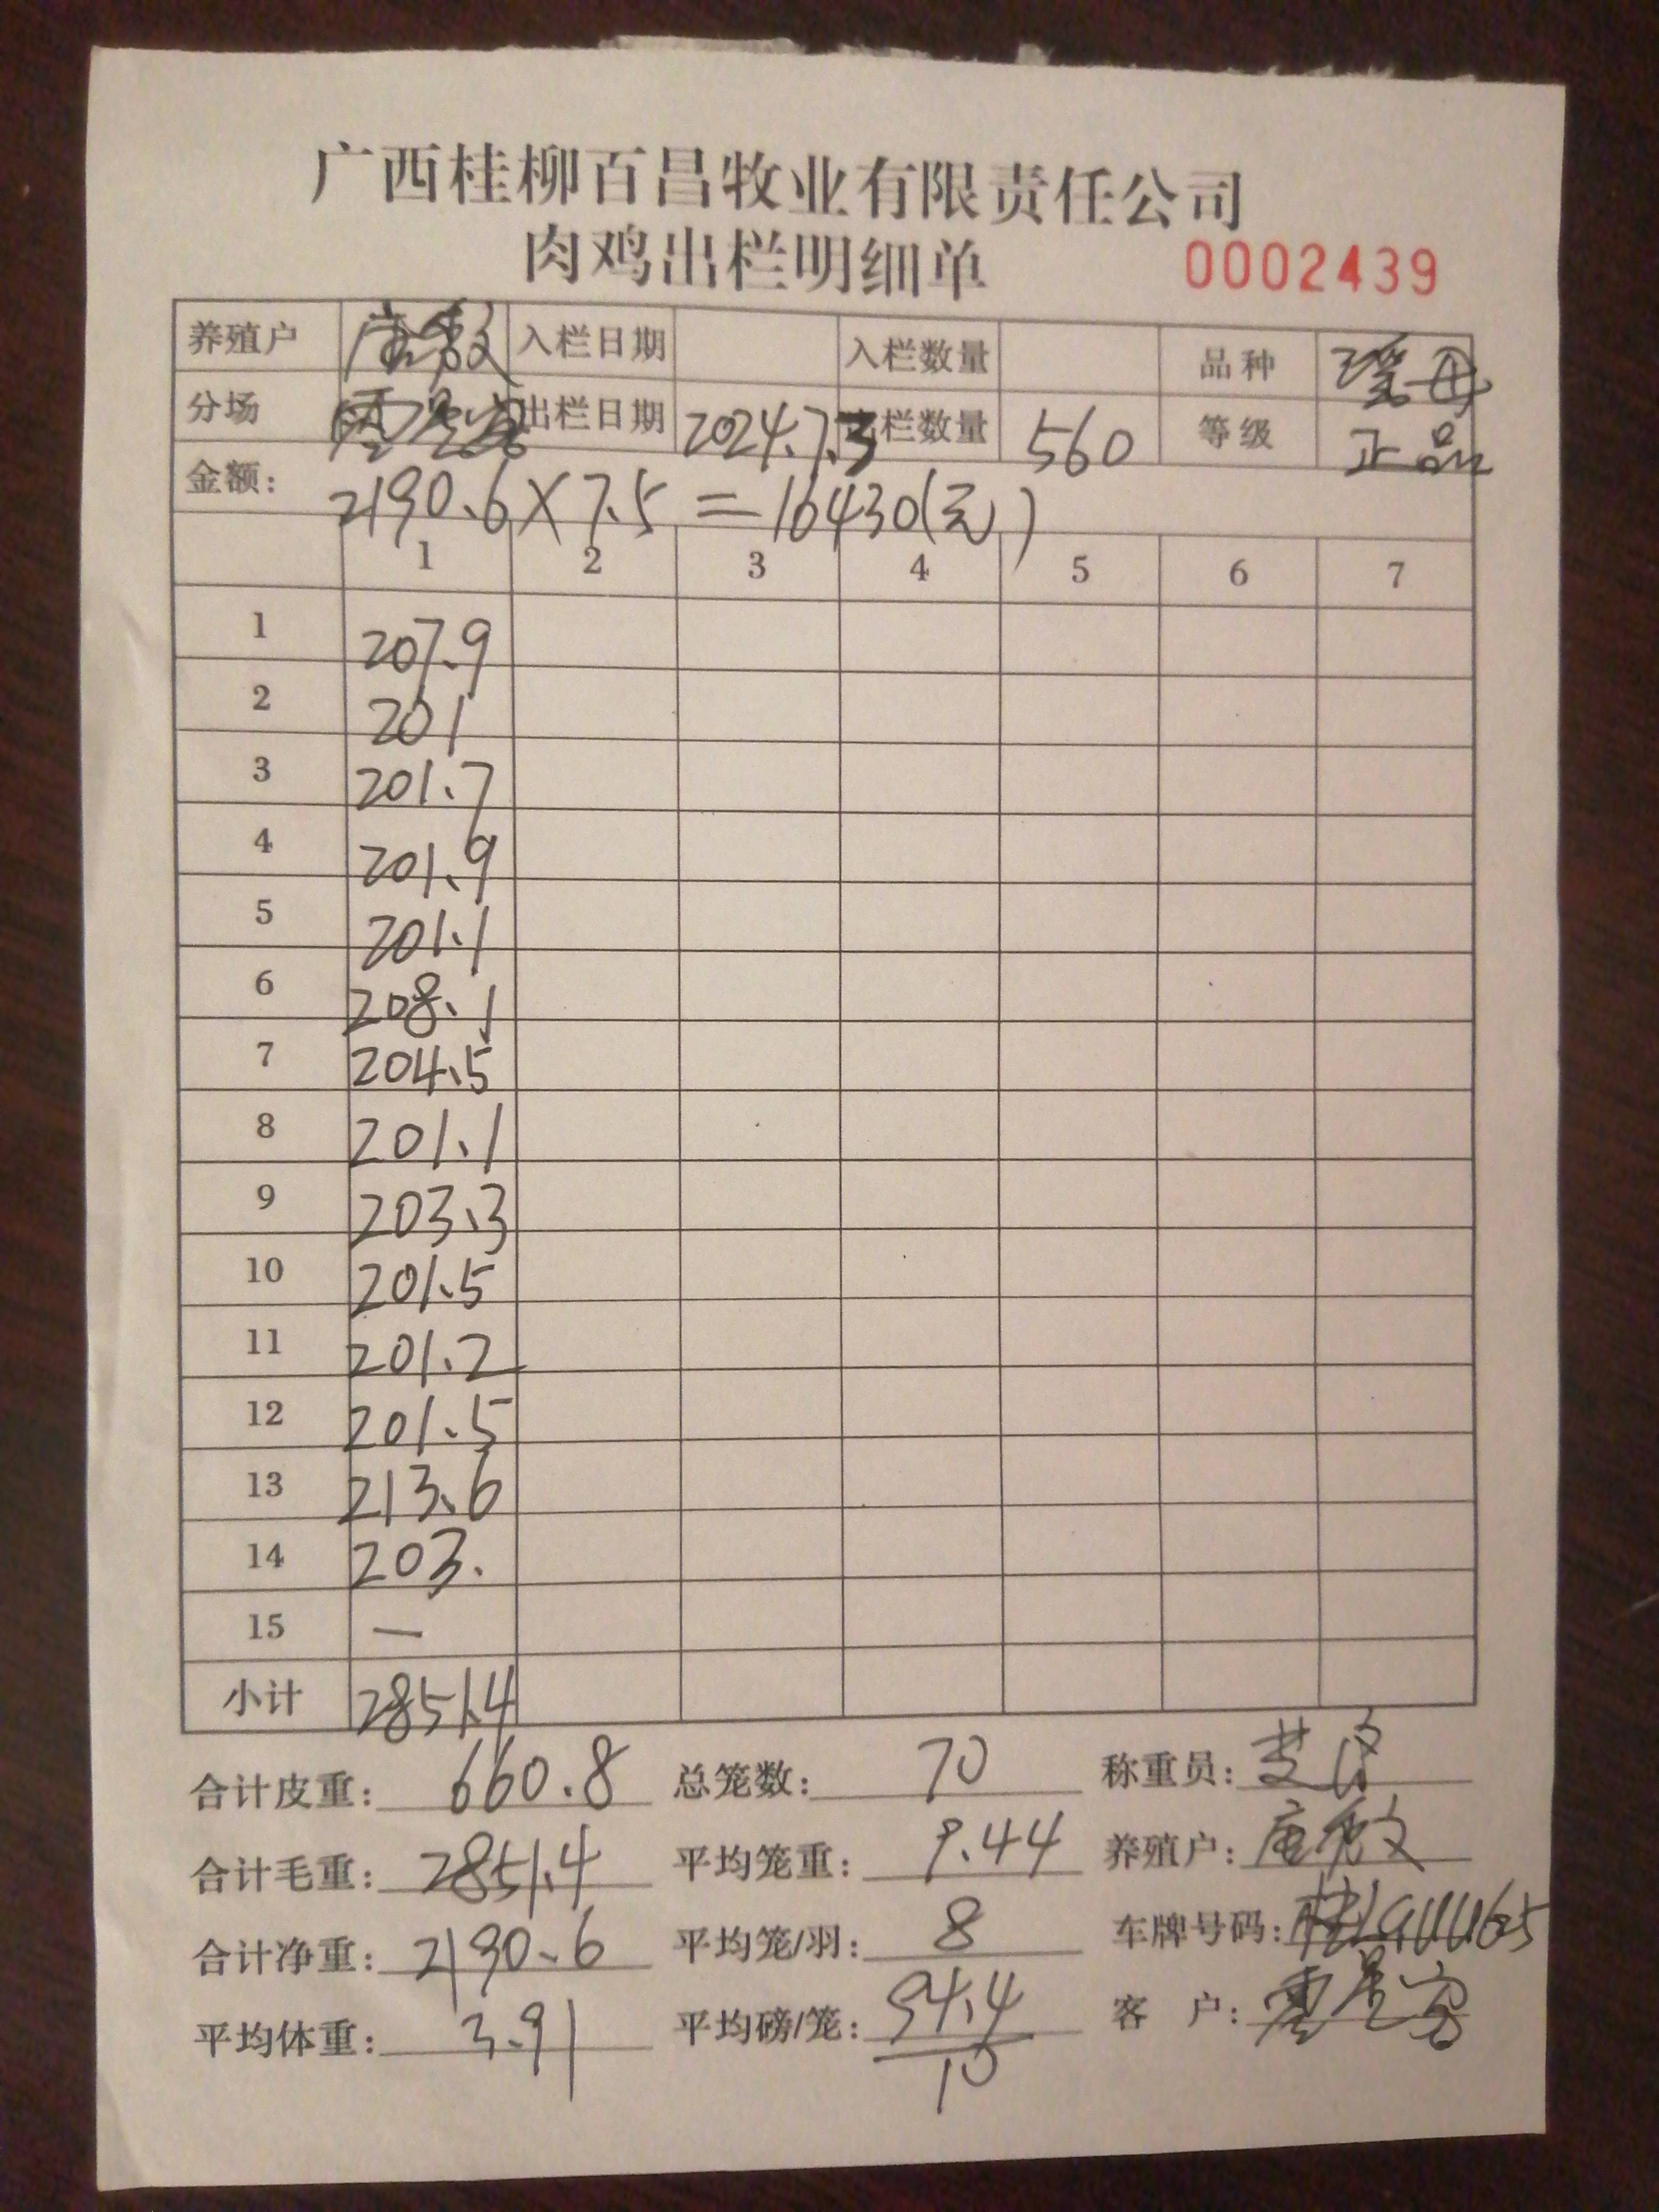 广西桂柳百昌牧业有限责任公司
肉鸡出栏明细单 0002439
养殖户 入栏日期 入栏数量 品种 瑶母
分场 出栏日期 2024.7.3 出栏数量 560 等级 正品
金额: 2190.6×7.5=16430(元)
1 2 3 4 5 6 7
1 207.9
2 201
3 201.7
4 201.9
5 201.1
6 208.1
7 204.5
8 201.1
9 203.3
10 201.5
11 201.2
12 201.5
13 213.6
14 203.
15 —
小计 2851.4
合计皮重: 660.8 总笼数: 70 称重员:
合计毛重: 2851.4 平均笼重: 9.44 养殖户:
合计净重: 2190.6 平均笼/羽: 8 车牌号码:
平均体重: 3.91 平均磅/笼: 94.4 客户:
10